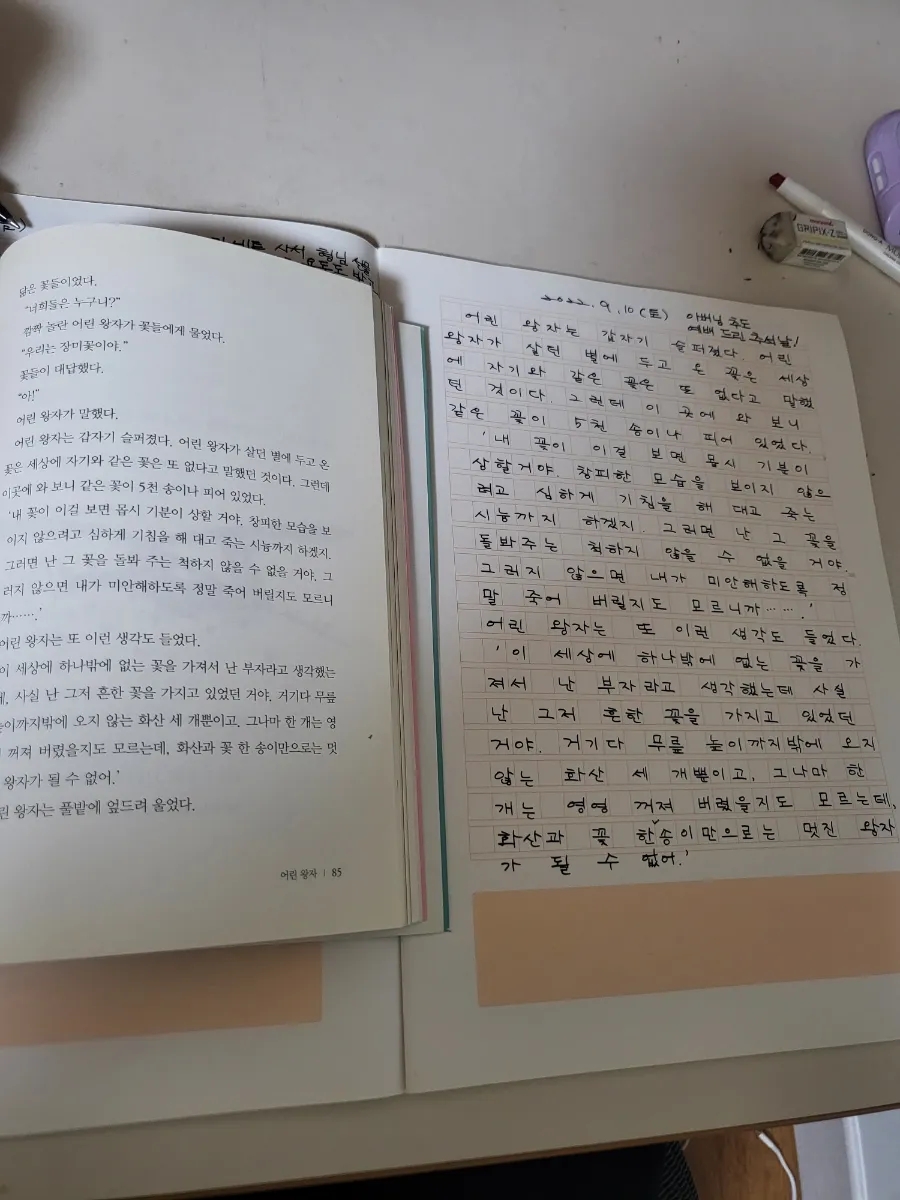 닮은 꽃들이었다.
"너희들은 누구니?"
깜짝 놀란 어린 왕자가 꽃들에게 물었다.
"우리는 장미꽃이야."
꽃들이 대답했다.
"아!"
어린 왕자가 말했다.
어린 왕자는 갑자기 슬퍼졌다. 어린 왕자가 살던 별에 두고 온
꽃은 세상에 자기와 같은 꽃은 또 없다고 말했던 것이다. 그런데
이곳에 와 보니 같은 꽃이 5천 송이나 피어 있었다.
'내 꽃이 이걸 보면 몹시 기분이 상할 거야. 창피한 모습을 보
이지 않으려고 심하게 기침을 해 대고 죽는 시늉까지 하겠지.
그러면 난 그 꽃을 돌봐 주는 척하지 않을 수 없을 거야. 그
러지 않으면 내가 미안해하도록 정말 죽어 버릴지도 모르니
까…….'
어린 왕자는 또 이런 생각도 들었다.
이 세상에 하나밖에 없는 꽃을 가져서 난 부자라고 생각했는
데, 사실 난 그저 흔한 꽃을 가지고 있었던 거야. 거기다 무릎
높이까지밖에 오지 않는 화산 세 개뿐이고, 그나마 한 개는 영
꺼져 버렸을지도 모르는데, 화산과 꽃 한 송이만으로는 멋
왕자가 될 수 없어.'
린 왕자는 풀밭에 엎드려 울었다.
어린 왕자 | 85
사서 형님 선물
2022. 9. 10 (토) 아버님 추도
예배 드린 추석날!
어린 왕자는 갑자기 슬퍼졌다. 어린
왕자가 살던 별에 두고 온 꽃은 세상
에 자기와 같은 꽃은 또 없다고 말했
던 것이다. 그런데 이 곳에 와 보니
같은 꽃이 5천 송이나 피어 있었다.
'내 꽃이 이걸 보면 몹시 기분이
상할거야. 창피한 모습을 보이지 않으
려고 심하게 기침을 해 대고 죽는
시늉까지 하겠지. 그러면 난 그 꽃을
돌봐주는 척하지 않을 수 없을 거야.
그러지 않으면 내가 미안해하도록 정
말 죽어 버릴지도 모르니까…….'
어린 왕자는 또 이런 생각도 들었다.
'이 세상에 하나밖에 없는 꽃을 가
져서 난 부자라고 생각했는데 사실
난 그저 흔한 꽃을 가지고 있었던
거야. 거기다 무릎 높이까지밖에 오지
않는 화산 세 개뿐이고, 그나마 한
개는 영영 꺼져 버렸을지도 모르는데,
화산과 꽃 한송이만으로는 멋진 왕자
가 될 수 없어.'
GRIPIX-Z